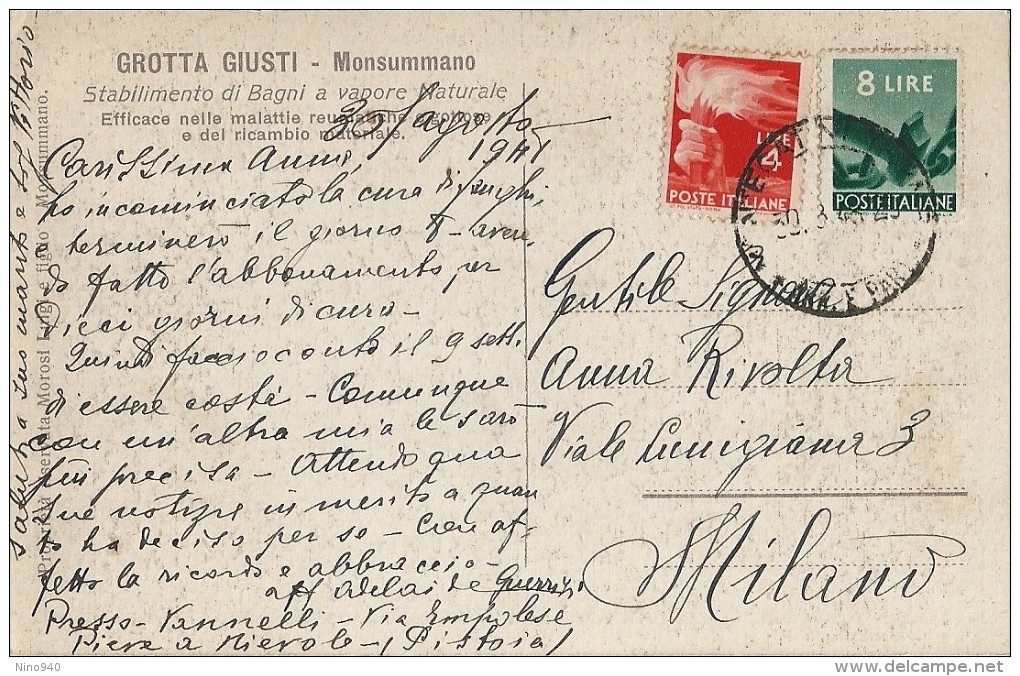 GROTTA GIUSTI - Monsummano
Stabilimento di Bagni a vapore Naturale
Efficace nelle malattie reumatiche e gottose
e del ricambio materiale.
agosto
Carissima Anna,
ho incominciato la cura di fanghi
terminerò il giorno 8 - aven
do fatto l'abbonamento per
dieci giorni di cura -
Quindi faccio conto il 9 sett.
di essere costì - Comunque
con un'altra mia le sarò
più precisa - Attendo qua
sue notizie in merito a quan
to ha deciso per se - Con af-
fetto la ricordo e abbraccio -
aff Adelaide Guerrizi
Presso - Vannelli - Via Empolese
Pieve a Nievole - (Pistoia)
saluti a suo marito e Vittorio
Proprietà riservata Morosi Luigi e figlio - Monsummano.
LIRE
4
POSTE ITALIANE
8 LIRE
POSTE ITALIANE
Gentile Signora
Anna Rivolta
Viale Lunigiana 3
Milano
Nino940
delcampe.net